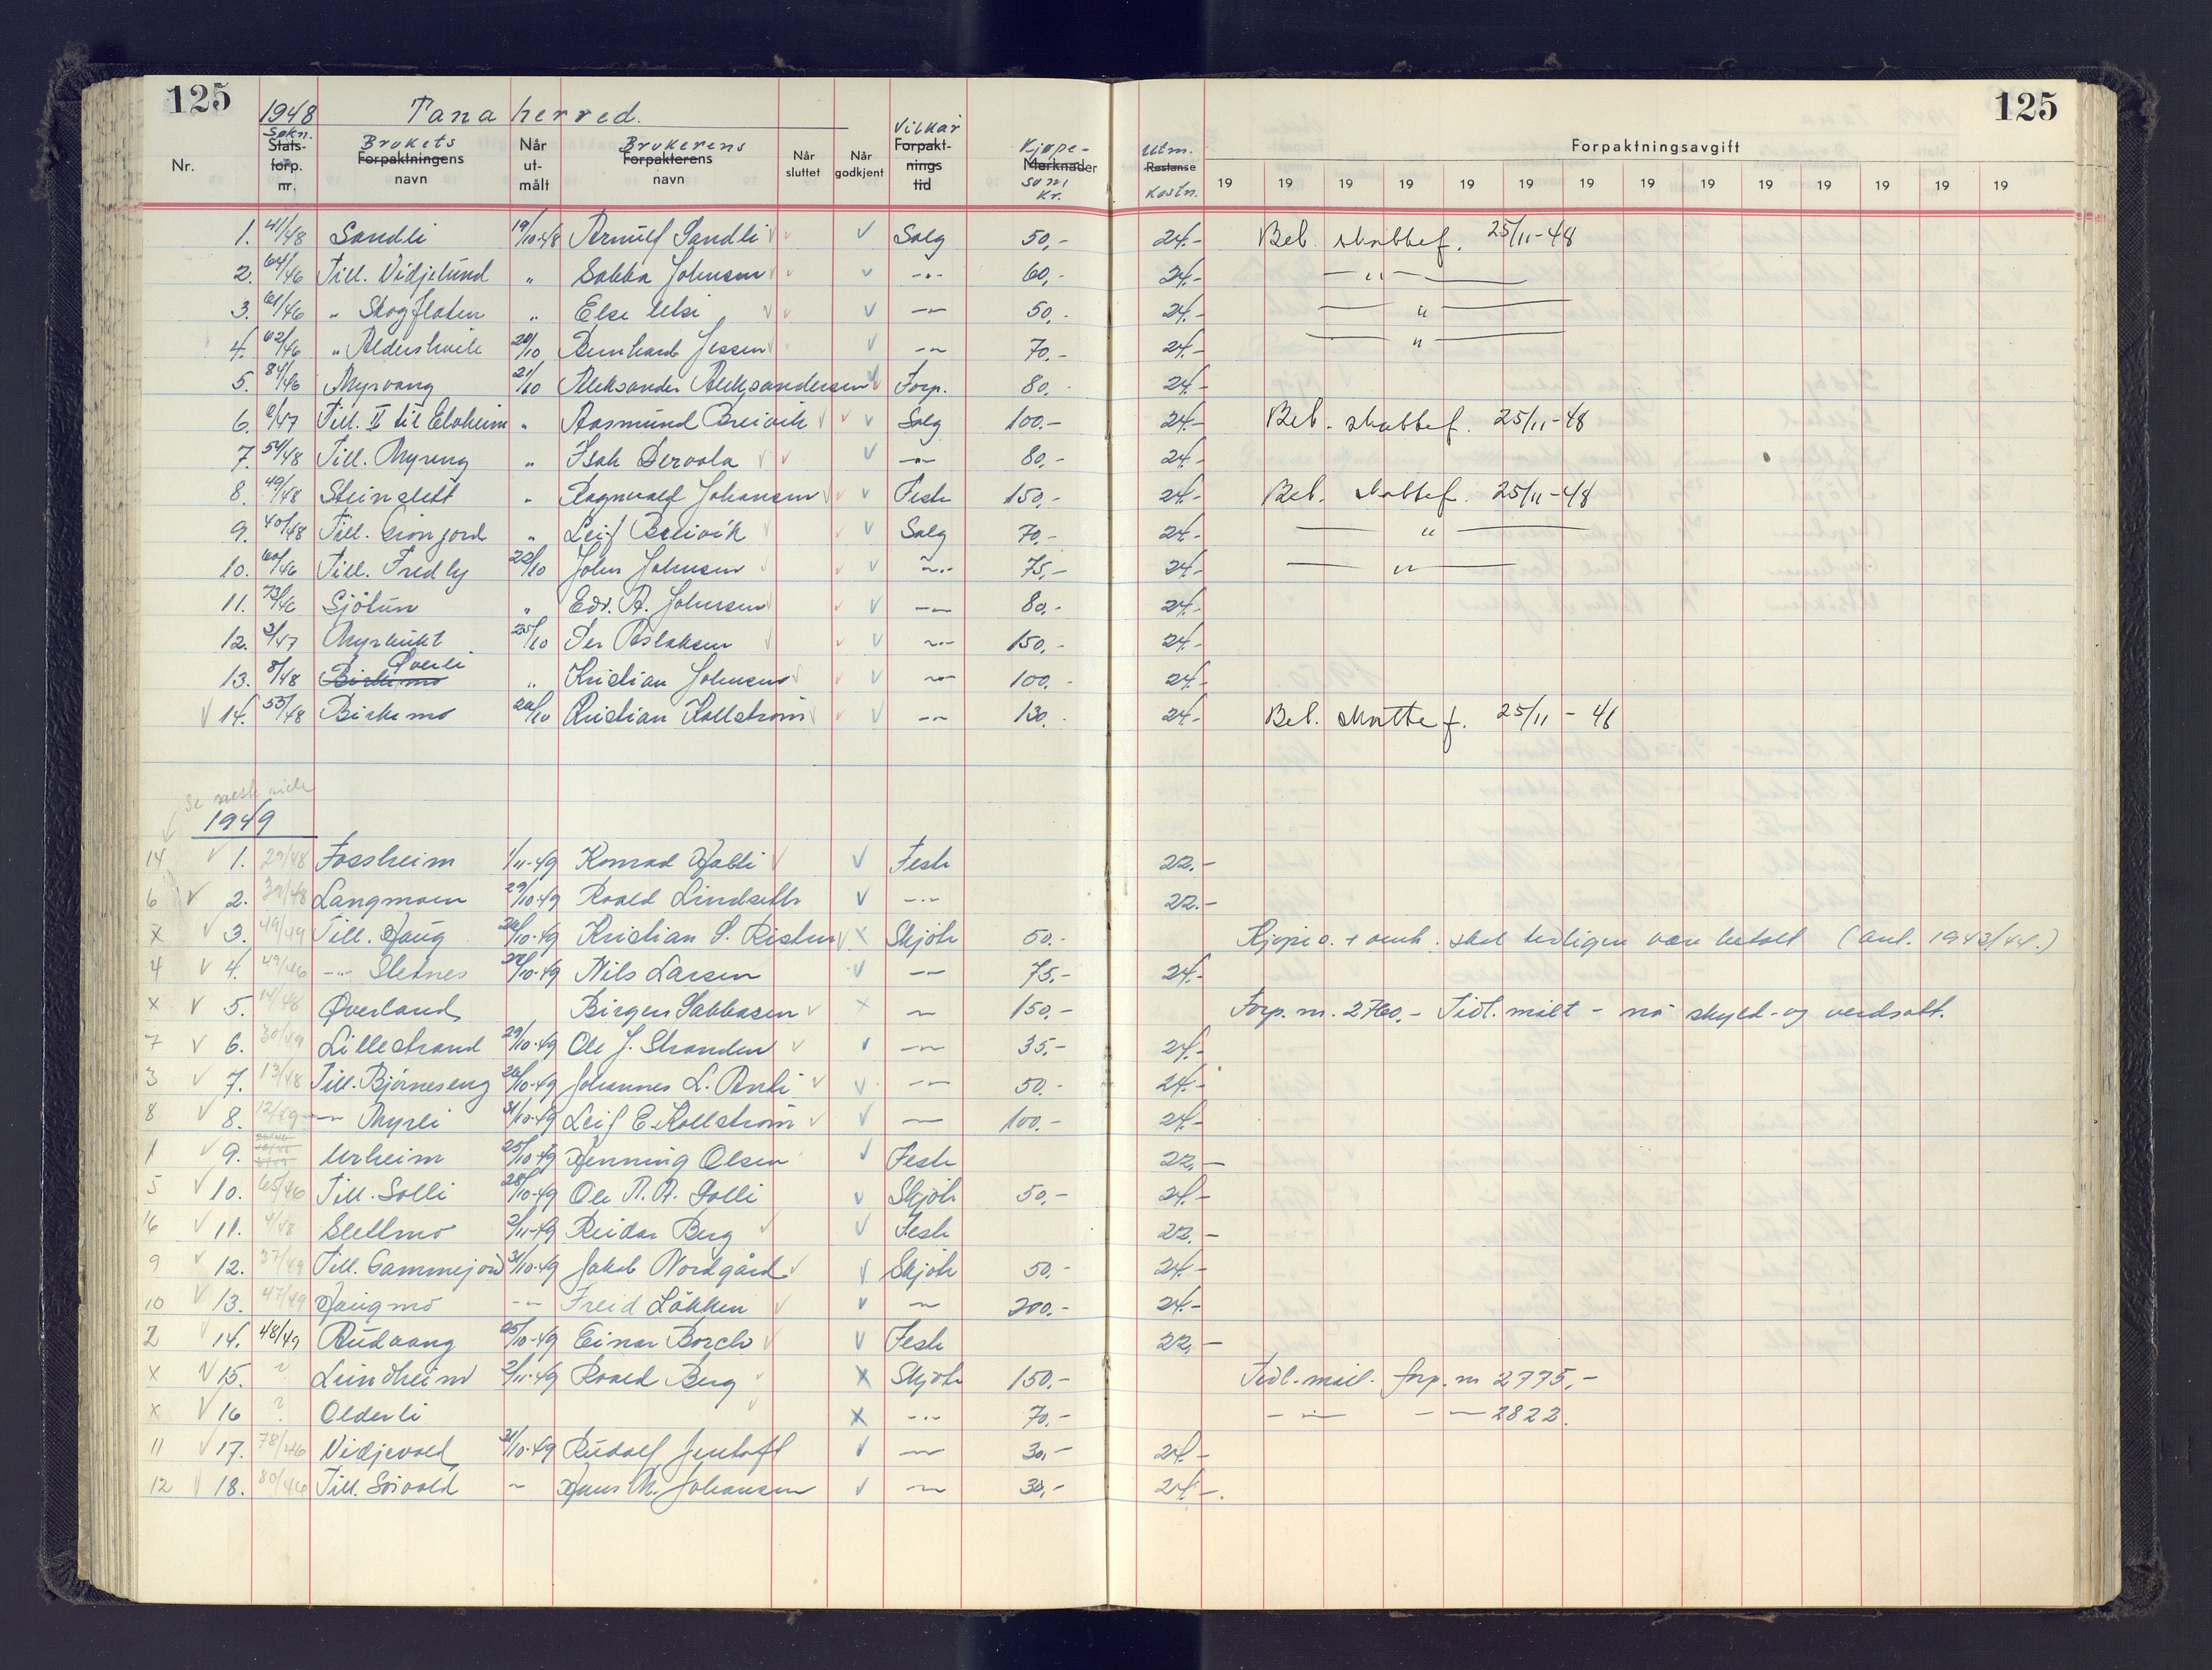 125
1948 Tana herred.
125
Nr. Søkn. Stats-forp. nr. Brukets Forpaktningens navn Når ut-målt Brukerens Forpakterens navn Når sluttet Når godkjent Vilkår Forpakt-nings tid Kjøpe- Merknader sum kr. Utm. Restanse kostn. Forpaktningsavgift
19 19 19 19 19 19 19 19 19 19 19 19 19 19
1. 41/48 Sandli 19/10-48 Arnulf Sandli Salg 50,- 24.- Bet. skattef. 25/11-48
2. 64/46 Till. Vidjelund " Sabba Johnsen -"- 60,- 24.- -"-
3. 61/46 " Skogflaten " Else Utsi -"- 50,- 24.- "
4. 62/46 " Aldershvile 20/10 Bernhard Jessen -"- 70,- 24.- "
5. 84/46 Myrvang 21/10 Aleksander Aleksandersen Forp. 80.- 24.-
6. 6/47 Till. II til Elvheim " Aasmund Breivik Salg 100.- 24.- Bet. skattef. 25/11-48
7. 54/48 Till. Myreng " Isak Dervola -"- 80,- 24.-
8. 49/48 Steinslett " Ragnvald Johansen Feste 150,- 24.- Bet. skattef. 25/11-48
9. 40/48 Till. Grønjord " Leif Breivik Salg 70,- 24.- "
10. 60/46 Till. Fredly 22/10 John Johnsen -"- 75,- 24.- "
11. 73/46 Sjötun " Edv. A. Johnsen -"- 80,- 24.-
12. 3/47 Myrbukt 25/10 Per Aslaksen -"- 150,- 24.-
Øverli
13. 8/48 Birkemo " Kristian Johnsen -"- 100.- 24.-
14. 53/48 Birkemo 26/10 Kristian Kollstrøm -"- 130.- 24.- Bet. skatte f. 25/11 - 48
Se neste side
1949
14 1. 29/48 Fossheim 1/11-49 Konrad Halti Feste 22.-
6 2. 39/48 Langmoen 29/10-49 Roald Lindseth -"- 22.-
x 3. 49/49 Till. Haug 26/10-49 Kristian S. Risten Skjöte 50.- Kjøpes. + omk. skal tidligere være betalt (ant. 1943/44.)
4 4. 49/46 -"- Sletnes 27/10-49 Nils Larsen -"- 75.- 24.-
x 5. 14/48 Øverland Birger Sabbasen -"- 150,- Forp. nr. 2760.- Tidl. målt - nå skyld- og verdsatt.
7 6. 30/49 Lillestrand 29/10-49 Ole J. Stranden -"- 35,- 24.-
3 7. 13/48 Till. Bjørneseng 26/10-49 Johannes L. Anti -"- 50.- 24.-
8 8. 12/49 -"- Myrli 31/10-49 Leif E. Kollstrøm -"- 100.- 24.-
1 9. Urheim 25/10-49 Henning Olsen Feste 22,-
5 10. 65/46 Till. Solli 28/10-49 Ole A. A. Solli Skjöte 50,- 24.-
16 11. 4/48 Slettmo 2/11-49 Reidar Berg Feste 22.-
9 12. 37/49 Till. Gammejord 31/10-49 Jakob Nordgård Skjöte 50,- 24.-
10 13. 47/49 Haugmo -"- Freid Løkken -"- 200.- 24.-
2 14. 48/49 Rudvang 25/10-49 Einar Borch Feste 22,-
x 15. ? Lundheim 2/11-49 Roald Berg Skjöte 150.- Tidl. målt. forp. nr 2775,-
x 16 ? Olderli -"- 70.- -"- -"- 2822.
11 17. 78/46 Vidjevold 31/10-49 Rudolf Jentoft -"- 30,- 24.-
12 18. 80/46 Till. Sörvold -"- Hans M. Johansen -"- 30,- 24.-